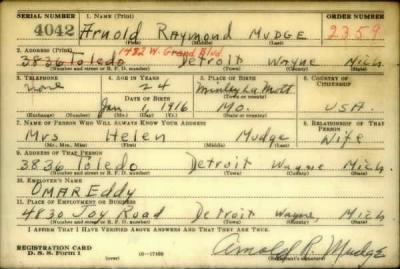 SERIAL NUMBER 1. NAME (Print) ORDER NUMBER
4042 Arnold Raymond MUDGE 2359
(First) (Middle) (Last)
2. ADDRESS (Print) 1482 W. Grand Blvd.
3836 Toledo Detroit Wayne Mich
(Number and street or R. F. D. number) (Town) (County) (State)
3. TELEPHONE 4. AGE IN YEARS 5. PLACE OF BIRTH 6. COUNTRY OF CITIZENSHIP
None 24
DATE OF BIRTH
Jan 1, 1916 Mo. U.S.A.
(Exchange) (Number) (Mo.) (Day) (Yr.) (State or country)
7. NAME OF PERSON WHO WILL ALWAYS KNOW YOUR ADDRESS 8. RELATIONSHIP OF THAT PERSON
Mrs Helen Mudge Wife
(Mr., Mrs., Miss) (First) (Middle) (Last)
9. ADDRESS OF THAT PERSON
3836 Toledo Detroit Wayne Mich.
(Number and street or R. F. D. number) (Town) (County) (State)
10. EMPLOYER'S NAME
OMAR Eddy
11. PLACE OF EMPLOYMENT OR BUSINESS
4830 Joy Road Detroit Wayne, Mich
(Number and street or R. F. D. number) (Town) (County) (State)
I AFFIRM THAT I HAVE VERIFIED ABOVE ANSWERS AND THAT THEY ARE TRUE.
REGISTRATION CARD
D. S. S. Form 1 (over) Arnold R. Mudge